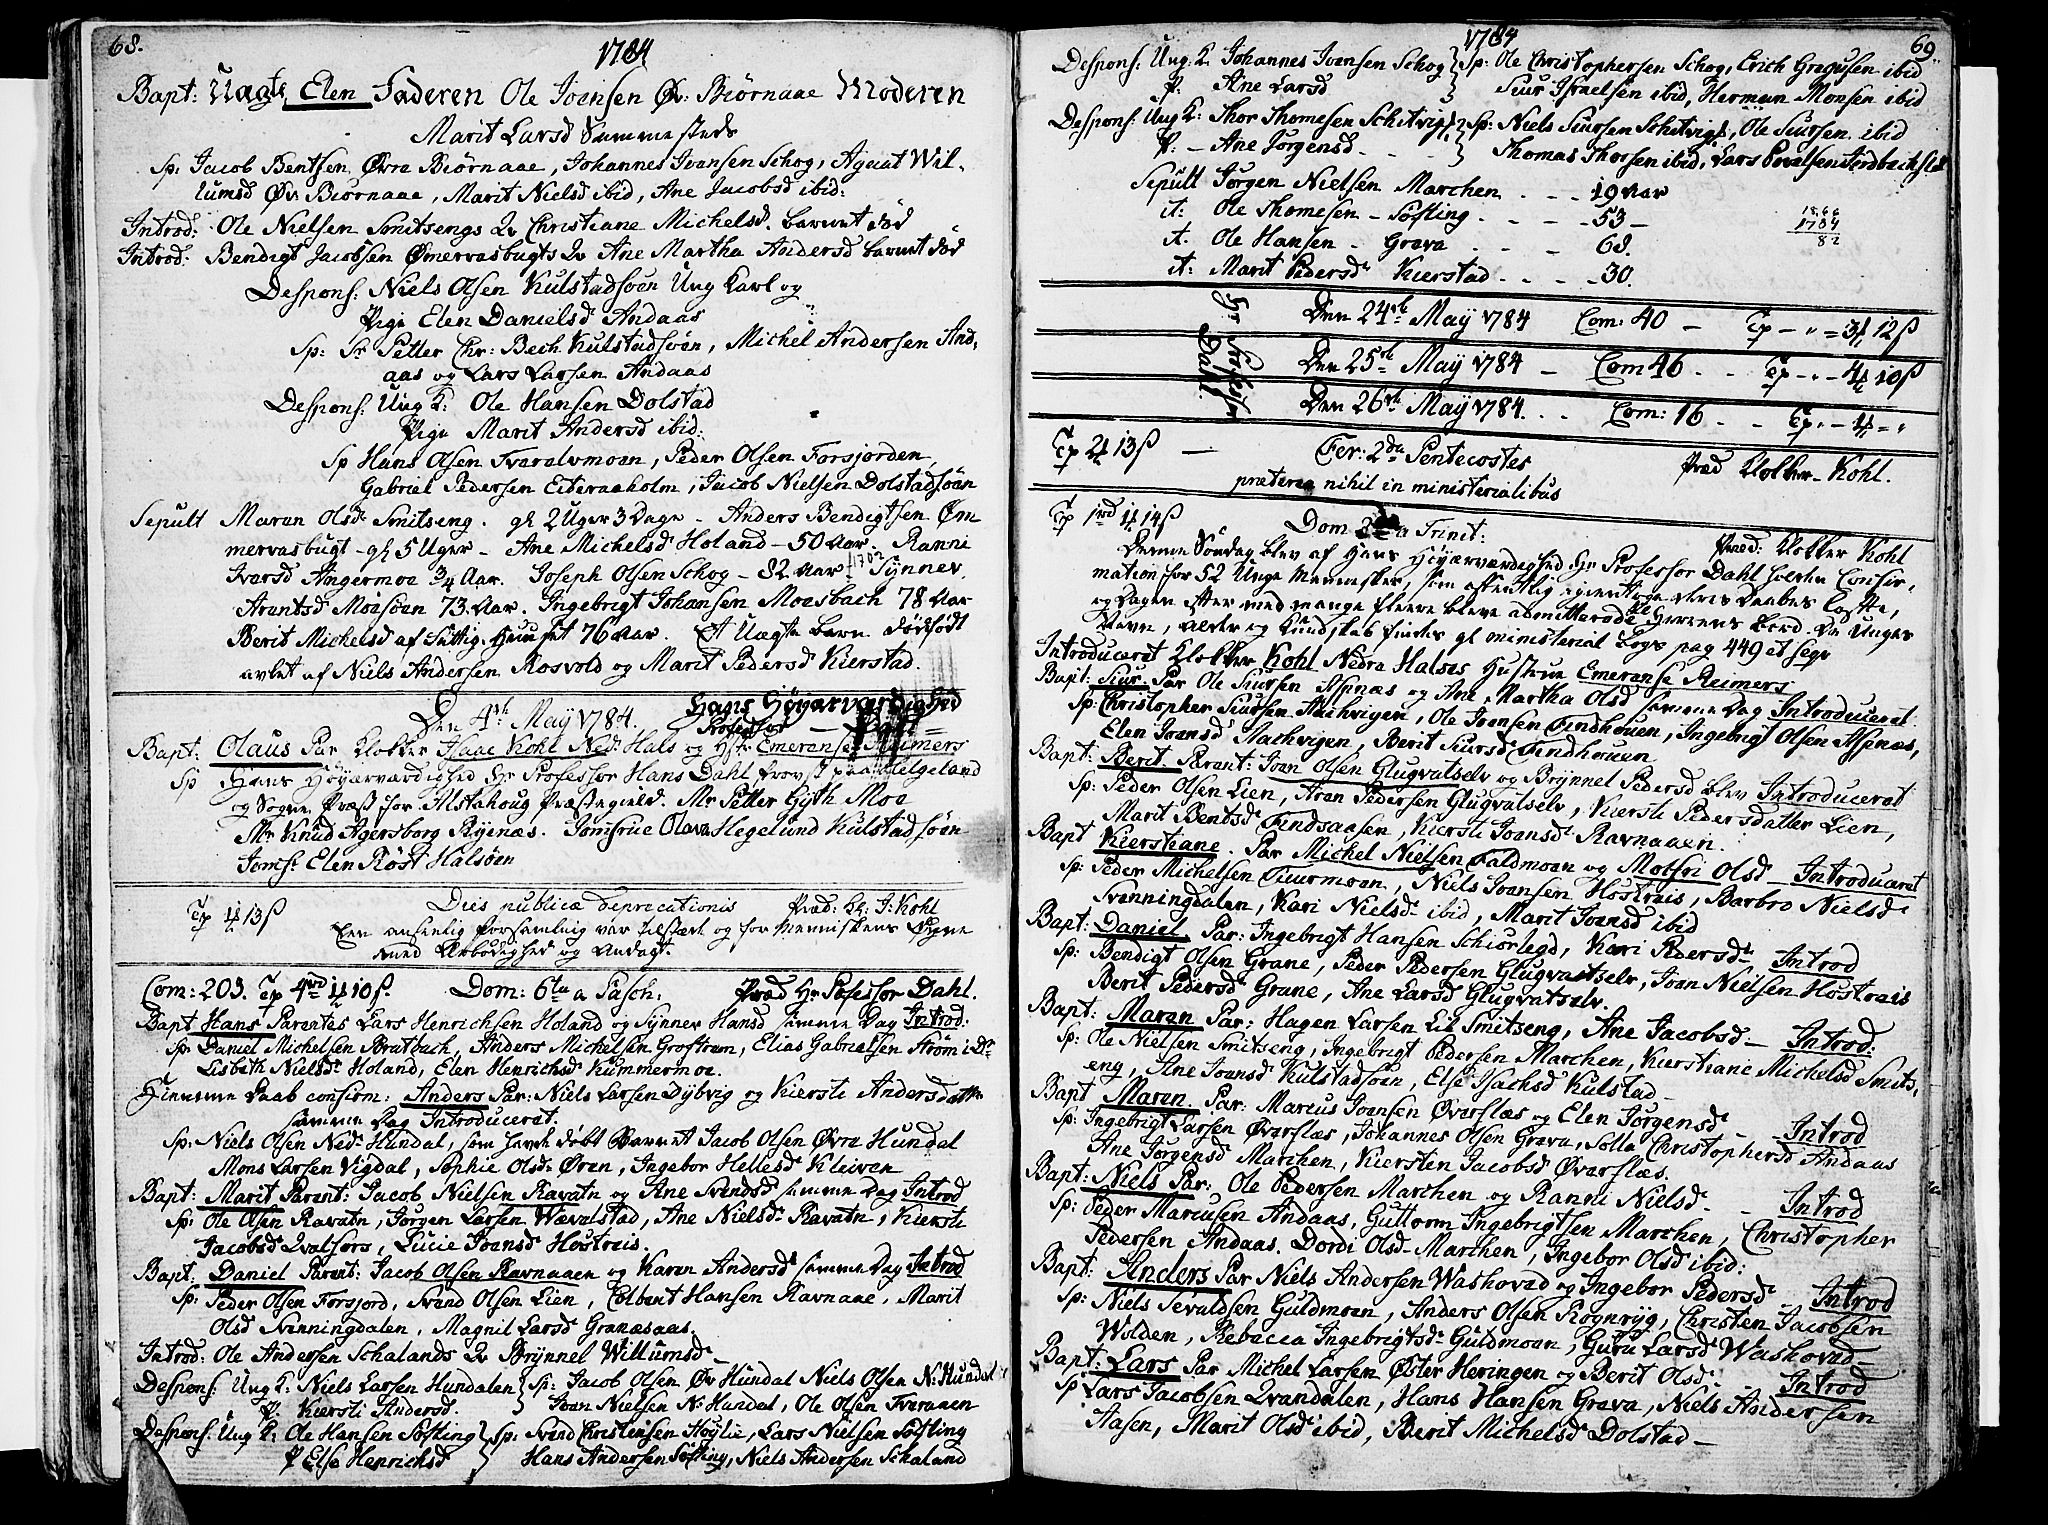 68.
1784
Bapt: Uægte Elen Faderen Ole Joensen Øv: Biørnaae Moderen
Marit Larsd Sammesteds
Sp: Jacob Bentsen Øvre Biørnaae, Johannes Ivansen Schog, Agaat Wil-
lumsd Øv: Biørnaae, Marit Nielsd ibid, Ane Jacobsd ibid:
Introd: Ole Nielsen Smitsengs Qv Christiane Michelsd. barnet död
Introd: Bendigt Jacobsen Ømervasbugts Qv Ane Martha Andersd barnet död
Despons: Niels Olsen Kulstadsøen Ung Karl og
Pige Elen Danielsd Andaas
Sp: Sr Petter Chr: Bech Kulstadsøen, Michel Andersen And-
aas og Lars Larsen Andaas
Despons: Ung K: Ole Hansen Dolstad
Pige Marit Andersd ibid:
Sp Hans Olsen Tveraaemoen, Peder Olsen Forsjorden
Gabriel Pedersen Eiteraaholm, Jacob Nielsen Dolstadsøen
Sepult Maren Olsd Smitseng. gl 2 Uger 3 Dage - Anders Bendigtsen Øm
mervasbugt - gl 5 Uger - Ane Michelsd Holand - 50 Aar. Ranni
Ivarsd Angermoe 3/4 Aar. Joseph Olsen Schog - 82 Aar Synnev.
Arentsd Moesøen 73 Aar. Ingebrigt Johansen Moesbach 78 Aar
Berit Michelsd af Fattig Huuset 76 Aar. Et Uægte barn dödfödt
avlet af Niels Andersen Rosvold og Marit Pedersd Kierstad.
Den 4de May 1784. Hans Høyærværdighed
Professor
Bapt: Olaus Par Klokker Isaac Kohl Ned: Hals og Hstr Emerense Reimers
Sp Hans Høyærværdighed Hr Professor Hans Dahl Provst paa Helgeland
og Sogne Præst for Alstahoug Præstegield. Mr Petter Gyth Moe
Mr Knud Agersborg Rynæs. Jomfrue Olava Hegelund Kulstadsøen
Jomfr Elen Røst Halsøen
Tp 1# 13ß Dies publicæ deprecationis Præd: Kl: J: Kohl
En anseelig Forsamling var tilstæde og for Menniskens Øyne
med Ærbödighed og Andagt.
Com: 203. Tp 4rd 1# 10ß. Dom: 6ta a Pasch. Præd Hr Professor Dahl.
Bapt Hans Parentes Lars Henrichsen Holand og Synnev Hansd samme Dag Introd:
Sp: Daniel Michelsen Bratbach, Anders Michelsen Groftrem, Elias Gabrielsen Strøm i D
Lisbeth Nielsd Holand, Elen Henrichsd Kummermoe.
Hiemme Daab confirm: Anders Par: Niels Larsen Dybvig og Kiersti Andersdatter
samme Dag Introduceret.
Sp: Niels Olsen Ned: Hundal, som havde döbt Barnet Jacob Olsen Øvre Hundal
Mons Larsen Vigdal, Sophie Olsd Øren, Ingebor Hellesd Kleiven
Bapt: Marit Parent: Jacob Nielsen Ravatn og Ane Svendsd samme Dag Introd
Sp: Ole Olsen Ravatn, Jørgen Larsen Wævelstad, Ane Nielsd Ravatn, Kiersti
Jacobsd Qvalfors, Lucie Joensd Hostreis.
Bapt: Daniel Parent: Jacob Olsen Ravnaaen og Karen Andersd samme Dag Introd
Sp: Peder Olsen Forsjord, Svend Olsen Lien, Colbent Hansen Ravnaae, Marit
Olsd Svenningdalen, Magnil Larsd Granæsaas
Introd: Ole Andersen Schalands Qv Brynnel Willumsd
Despons: Ung K: Niels Larsen Hundalen } Sp: Jacob Olsen Øv Hundal Niels Olsen N: Hundal
P Kiersti Andersd. } Joen Nielsen N: Hundal, Ole Olsen Tveraaen
Despons: Ung K: Ole Hansen Søfting } Sp: Svend Christensen Høylie, Lars Nielsen Søfting
P Else Henrichsd } Hans Andersen Søfting, Niels Andersen Schaland
1784
69
Despons: Ung: K Johannes Ivensen Schog } Sp: Ole Christophersen Schog, Erich Gregusen ibid
P: Ane Larsd } Siur Israelsen ibid, Herman Monsen ibid
Despons: Ung K: Thor Thomesen Schitvig } Sp: Niels Siursen Schitvig, Ole Siursen ibid
P: - Ane Jørgensd } Thomas Thorsen ibid, Lars Povelsen
Sepult Jørgen Nielsen Marchen - - - 19 Aar
it: Ole Thomesen - Søfting - - - 53 -
it. Ole Hansen - Greva - - - 68.
it: Marit Pedersd Kierstad - - - 30.
1866
1784
82
Hr Professor
Dahl.
Den 24de May 1784 Com: 40 - Tp - " = 3# 12ß
Den 25de May 1784 - Com 46 - - Tp - " - 4# 10ß
Den 26de May 1784. - - Com: 16 - - Tp " - 1# - "
Tp 2# 13ß - Fer: 2da Pentecostes Præd Klokker - Kohl.
præterea nihil in ministerialibus
Tp 1rd 1# 14ß Dom 2da a Trinit: Præd: Klokker Kohl
Denne Söndag blev af Hans Høyærværdighed Hr Professor Dahl holden Confir-
mation for 52 Unge Mennesker, som offentlig igientoge deres Daabes Løfte,
og Dagen efter med mange fleere bleve admitterede til Herrens bord. De Unges
Navne, Alder og Kundskab findes gl ministerial Bogs pag 449 et seqv
Introduceret Klokker Kohl Nedre Halses Hustrue Emerense Reimers
Bapt: Siur. Par Ole Siursen Aspnæs og Ane Martha Olsd samme Dag Introduceret
Sp: Christopher Siursen Aachvigen, Ole Ivensen Tindhouen, Ingebrigt Olsen Aspnæs,
Elen Ivensd Aachvigen, Berit Siursd Tindhouen
Bapt: Berit. Parent: Joen Olsen Glugvatselv og Brynnel Pedersd blev Introduceret
Sp: Peder Olsen Lien, Aren Pedersen Glugvatselv, Kiersti Pedersdatter Lien,
Marit Bentsd Findsaasen, Kiersti Joensd Ravnaaen.
Bapt Kierstiane. Par Michel Nielsen Faldmoen og Molfri Olsd Introduceret
Sp: Peder Michelsen Tuurmoen, Niels Joensen Hostreis, Barbro Nielsd
Svenningdalen, Kari Nielsd ibid, Marit Joensd ibid
Bapt: Daniel. Par: Ingebrigt Hansen Schiørlegd, Kari Pedersd Introd
Sp: Bendigt Olsen Grane, Peder Pedersen Glugvatselv, Joen Nielsen Hostreis
Berit Pedersd Grane, Ane Larsd Glugvatselv.
Bapt: Maren Par: Hagen Larsen Lil Smitseng, Ane Jacobsd - Introd:
Sp: Ole Nielsen Smitseng, Ingebrigt Pedersen Marchen, Kierstiane Michelsd Smits-
eng, Ane Joensd Kulstadsøen, Else Isachsd Kulstad -
Bapt Maren. Par: Marcus Joensen Øverfles og Elen Jørgensd - Introd
Sp: Ingebrigt Larsen Øverfles, Johannes Olsen Greva, Solle Christophersd Andaas
Ane Jørgensd Marchen, Kiersten Jacobsd Øverfles.
Bapt: Niels Par: Ole Pedersen Marchen og Ranni Nielsd - - Introd
Sp: Peder Marcusen Andaas, Guttorm Ingebrigtsen Marchen, Christopher
Pedersen Andaas. Dordi Olsd Marchen, Ingebor Olsd ibid:
Bapt: Anders Par Niels Andersen Waskoved og Ingebor Pedersd Introd
Sp: Niels Sevaldsen Guldmoen, Anders Olsen Rognryg, Christen Jacobsen
Wolden, Rebecca Ingebrigtsd Guldmoen, Guru Larsd Waskoved -
Bapt: Lars Par Michel Larsen Øster Heringen og Berit Olsd Introd
Sp Lars Jacobsen Qvandalen, Hans Hansen Greva, Niels Andersen
Aasen, Marit Olsd ibid, Berit Michelsd Dolstad -